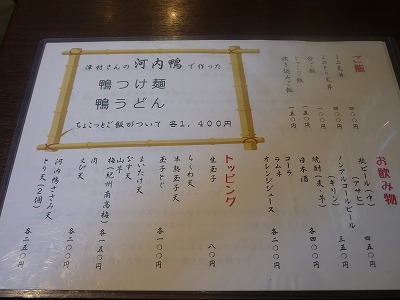 津村さんの河内鴨で作った
鴨つけ麺
鴨うどん
ちょこっとご飯がついて 各1,400円
ご飯
四〇〇円
四〇〇円
一五〇円
炊き込みご飯 一五〇円
お飲み物
瓶ビール(中)
(アサヒ) 四五〇円
ノンアルコールビール
(キリン) 三五〇円
焼酎(麦、芋)
日本酒 各四〇〇円
コーラ
ラムネ
オレンジジュース 各二〇〇円
トッピング
生玉子 八〇円
ちくわ天
半熟玉子天
玉子とじ 各一〇〇円
まいたけ天
なす天
山芋
梅(紀州南高梅) 各一五〇円
肉
えび天 各二〇〇円
河内鴨ささみ天
とり天(2個) 各二五〇円